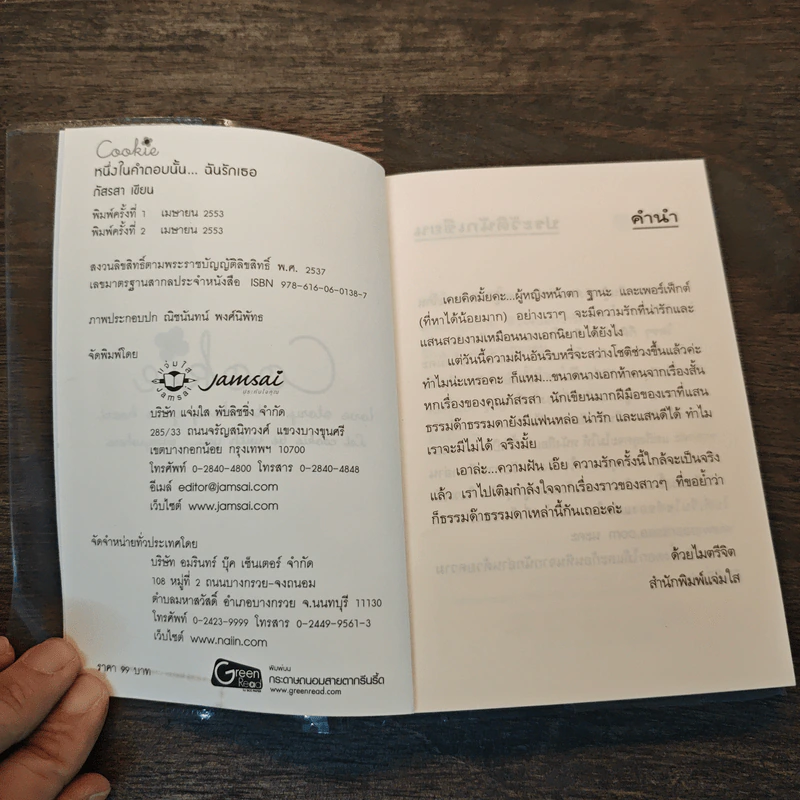 Cookie
หนึ่งในคำตอบนั้น... ฉันรักเธอ
ภัสรสา เขียน
พิมพ์ครั้งที่ 1 เมษายน 2553
พิมพ์ครั้งที่ 2 เมษายน 2553
สงวนลิขสิทธิ์ตามพระราชบัญญัติลิขสิทธิ์ พ.ศ. 2537
เลขมาตรฐานสากลประจำหนังสือ ISBN 978-616-06-0138-7
ภาพประกอบปก ณิชนันทน์ พงศ์นิพัทธ
จัดพิมพ์โดย
แจ่มใส
Jamsai
Jamsai
บริษัท แจ่มใส พับลิชชิ่ง จำกัด
285/33 ถนนจรัญสนิทวงศ์ แขวงบางขุนศรี
เขตบางกอกน้อย กรุงเทพฯ 10700
โทรศัพท์ 0-2840-4800 โทรสาร 0-2840-4848
อีเมล์ editor@jamsai.com
เว็บไซต์ www.jamsai.com
จัดจำหน่ายทั่วประเทศโดย
บริษัท อมรินทร์ บุ๊ค เซ็นเตอร์ จำกัด
108 หมู่ที่ 2 ถนนบางกรวย-จงถนอม
ตำบลมหาสวัสดิ์ อำเภอบางกรวย จ.นนทบุรี 11130
โทรศัพท์ 0-2423-9999 โทรสาร 0-2449-9561-3
เว็บไซต์ www.naiin.com
ราคา 99 บาท
Green Read
พิมพ์บน
กระดาษถนอมสายตากรีนรี้ด
www.greenread.com
คำนำ
เคยคิดมั้ยคะ...ผู้หญิงหน้าตา ฐานะ และเพอร์เฟ็กต์
(ที่หาได้น้อยมาก) อย่างเราๆ จะมีความรักที่น่ารักและ
แสนสวยงามเหมือนนางเอกนิยายได้ยังไง
แต่วันนี้ความฝันอันริบหรี่จะสว่างโชติช่วงขึ้นแล้วค่ะ
ทำไมน่ะเหรอคะ ก็แหม...ขนาดนางเอกห้าคนจากเรื่องสั้น
หกเรื่องของคุณภัสรสา นักเขียนมากฝีมือของเราที่แสน
ธรรมด๊าธรรมดายังมีแฟนหล่อ น่ารัก และแสนดีได้ ทำไม
เราจะมีไม่ได้ จริงมั้ย
เอาล่ะ...ความฝัน เอ๊ย ความรักครั้งนี้ใกล้จะเป็นจริง
แล้ว เราไปเติมกำลังใจจากเรื่องราวของสาวๆ ที่ขอย้ำว่า
ก็ธรรมด๊าธรรมดาเหล่านี้กันเถอะค่ะ
ด้วยไมตรีจิต
สำนักพิมพ์แจ่มใส